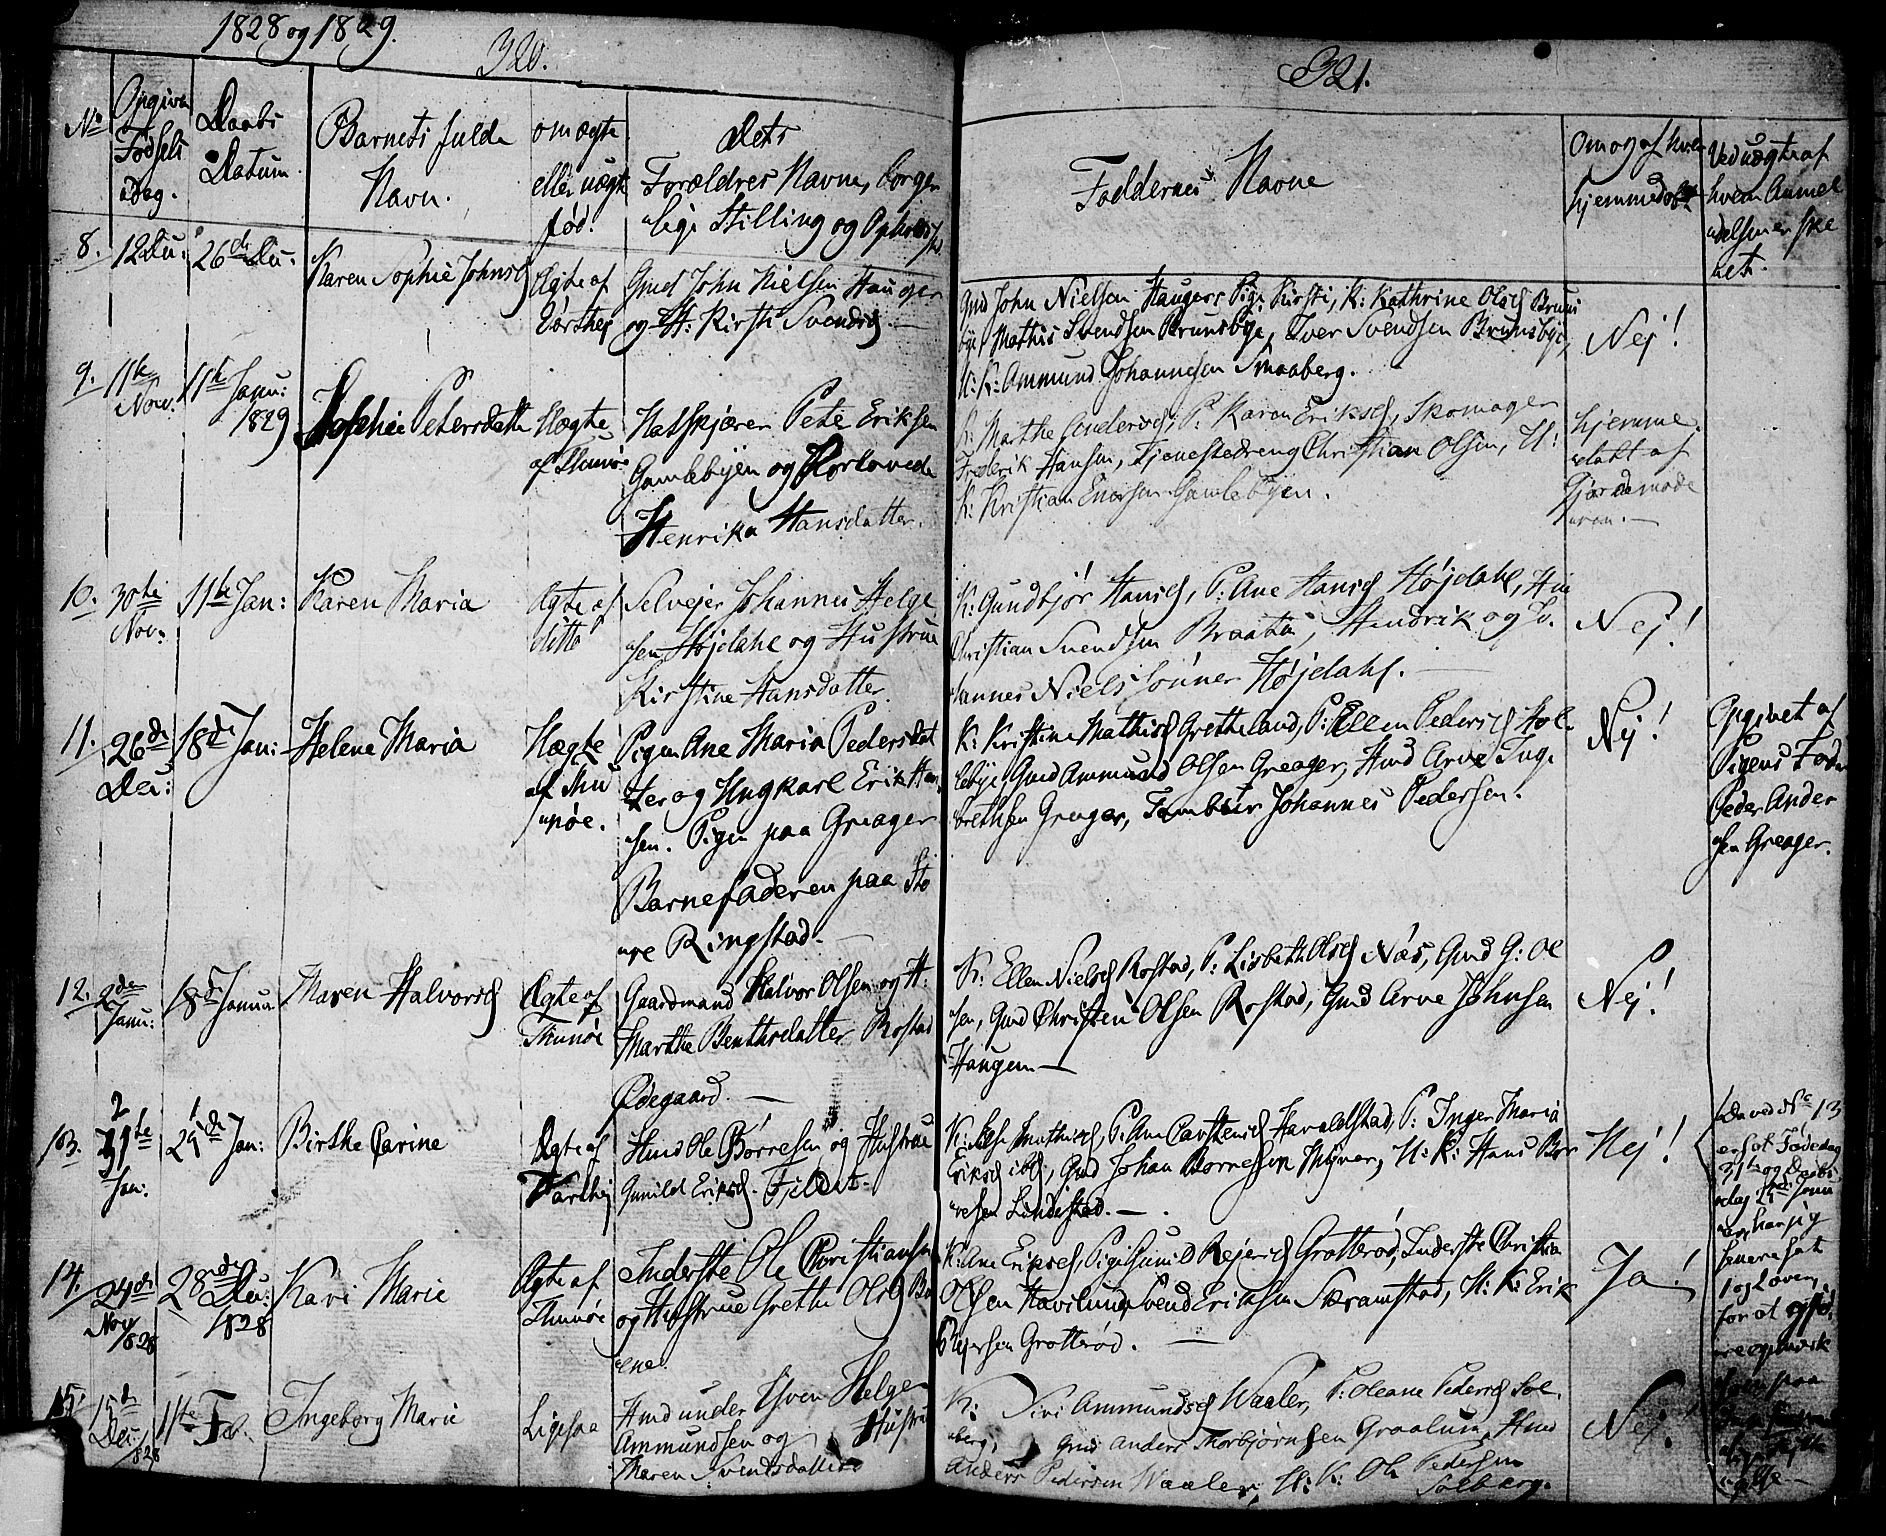 1828 og 1829.
320.
No
Opgiven
Fødsels
Dag.
Daabs
Datum.
Barnets fulde
Navn.
om ægte
eller uægte
fød.
Dets
Forældres Navne, borger
lige Stilling og Opholdssted
8.
12 De:
26de De:
Karen Sophie Johnsd
Ægte af
Gmd John Nielsen Hauger
og H: Kirsti Svendsd.
9.
11te
Nov.
11te Janu:
1829
Sophie Petersdatter
Uægte
af Thunøe
Natskjører Peter Eriksen
Gamlebyen og Forlovede
Henrika Hansdatter.
10.
30te
Nov:
11te Jan:
Karen Maria
Ægte af
ditto
Selvejer Johannes Helge
sen Højdahl og Hustrue
Kirstine Hansdatter
11.
26de
Dec:
18de Jan:
Helene Maria
Uægte
af Thu
nøe.
Pigen Ane Maria Pedersdat
ter og Ungkarl Erik Han
sen. Pigen paa Greager
Barnefaderen paa Sto
re Ringstad.
12.
2de
Janu:
18de Janua
Maren Halvorsd
Ægte af
Thunøe
Gaardmand Halvor Olsen og H:
Marthe Benthsdatter Rostad
Ødegaard.
13.
2
31te
Jan:
1
29de Jan:
Birthe Carine
Ægte af
Varthej
Hmd Ole Børresen og Hustrue
Gunild Eriksd. Fjeldet.
14.
24de
Nov
1828
28de
Dec:
1828
Kari Marie
Ægte af
Thunøe
Inderste Ole Christiansen
og Hustrue Grethe Olsd
ene.
15.
15de
Dec:
1828
11te Feb.
Ingeborg Marie
Ligesaa
Hmd under Helge
Ammundsen og Hustrue
Maren Svendsdatter
321.
Faddernes Navne
Om og af hvem
hjemmedøbt
Ved uægte af
hvem Anmel
delsen er ske
et.
Gmd John Nielsen Haugers Pige Kirsti, K: Kathrine Olsd Bruns
bye, Mathis Svendsen Brunsbye, Iver Svendsen Brunsbye,
U: K: Ammund Johannesen Smaaberg.
Nej!
K: Marthe Andersd, P: Karen Eriksd, Skomager
Frederik Hansen, Tjenestedreng Christian Olsen, U:
K: Kristian Enersen Gamlebyen.
hjemme
døbt af
Gjordemode
ren.
K: Gundbjør Hansd, P: Ane Hansd Højdahl, Hm
Christian Svendsen Braaten, Hendrik og Jo
hannes Niels Sønner Højdahl.
Nej!
K: Kristine Mathisd Gretheland, P: Ellen Pedersd Hol
lebye, Gmd Ammund Olsen Greager, Hmd Arve Inge
brethsen Greager, Tambur Johannes Pedersen.
Nej!
Opgivet af
Pigens Fader
Peder Ander
sen Greager.
K: Ellen Nielsd Rostad, P: Lisbeth Olsd Næs, Gmd G: Ol
sen, Gmd Christen Olsen Rostad, Gmd Arve Johnsen
Haugen
Nej!
K: Else Mathisd, P: Ane Carstensd Haraldstad, P: Inger Maria
Eriksd ibd:, Gmd Johan Børresen Myrer, U: K: Hans Bør
resen Lindestad.
Nej!
Da ved No 13
er sat Fødedag
31te og Daabs
dag 29de Janu
ar, har jeg
senere sat
1 og 2 oven
for at
K: Ane Eriksd, Pige Gunild Rejersd Grotterød, Inderste Christian
Olsen Havelund, Svend Eriksen Skramstad, U: K: Erik
Rejersen Grotterød.
Ja!
K: Siri Ammundsd Waaler, P: Oleane Pedersd Sol
berg, Gmd Anders Thorbjørnsen Graalum, Hmd
Anders Pedersen Waaler, U: K: Ole Pedersen
Solberg.
Nej!